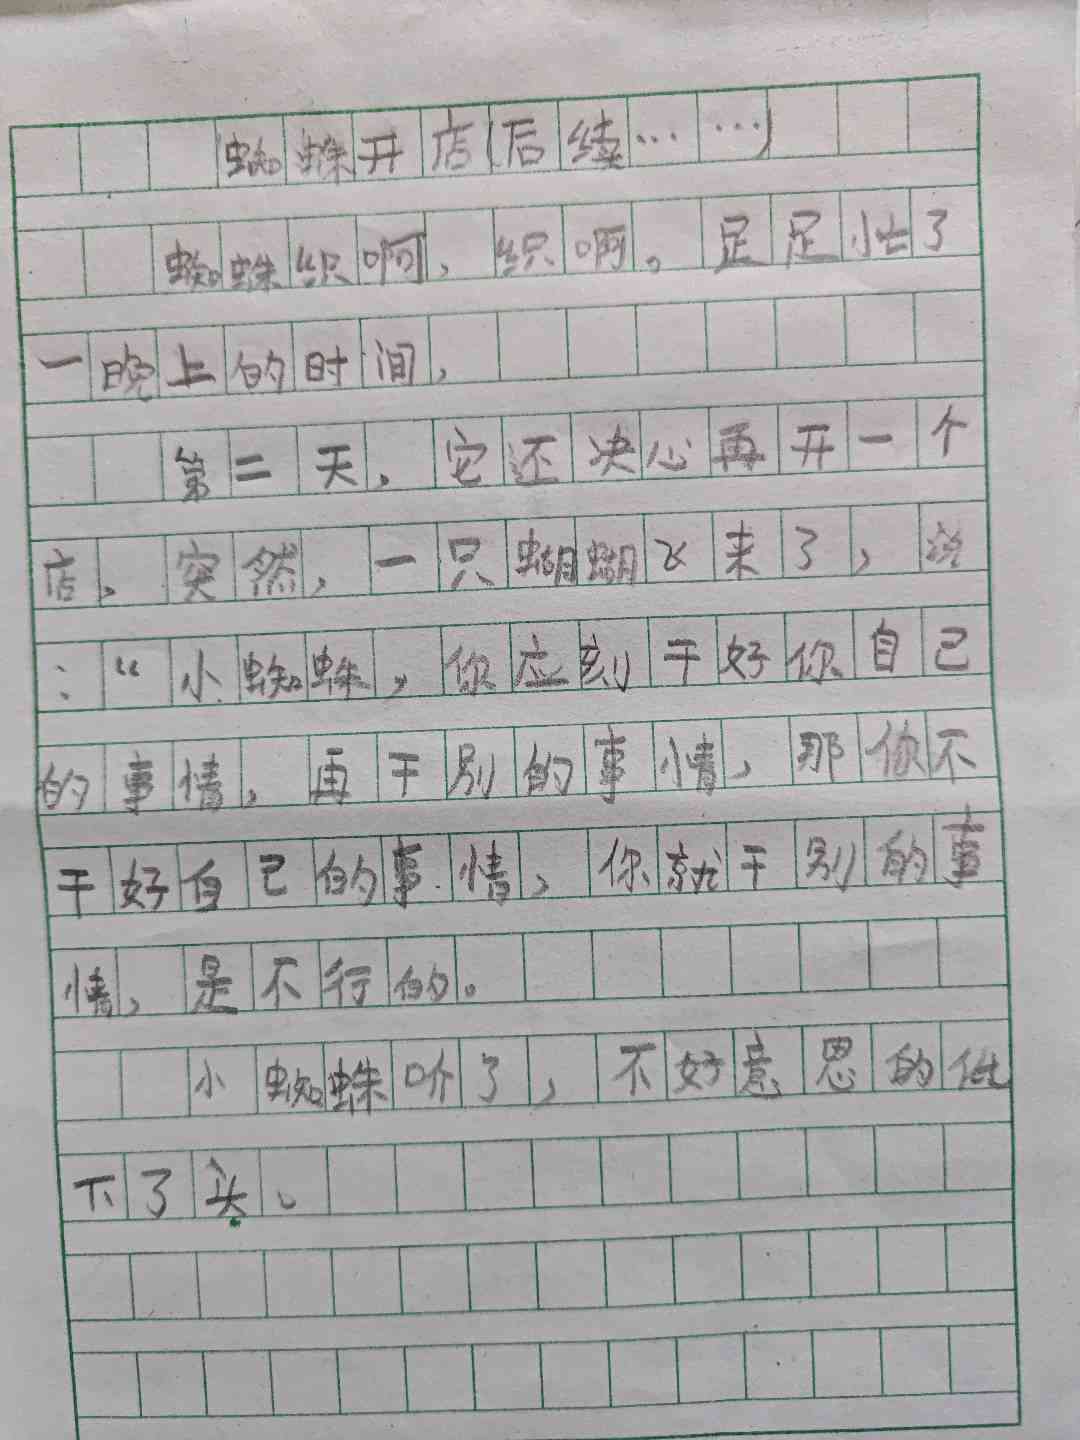 蜘蛛开店(后续……)
蜘蛛织啊，织啊。足足忙了
一晚上的时间，
第二天，它还决心再开一个
店，突然，一只蝴蝴飞来了，说
：“小蜘蛛，你应刻干好你自己
的事情，再干别的事情，那你不
干好自己的事情，你就干别的事
情，是不行的。
小蜘蛛吤了，不好意思的低
下了头。